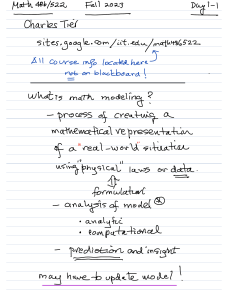 Math 486/522 Fall 2023 Day 1-1
Charles Tier
sites.google.com/iit.edu/math486522
All course info located here
not on blackboard!
What is math modeling?
- process of creating a
mathematical representation
of a "real-world situation
using "physical" laws or data.
formulation
- analysis of model
• analytic
• computational
- prediction and insight
may have to update model!